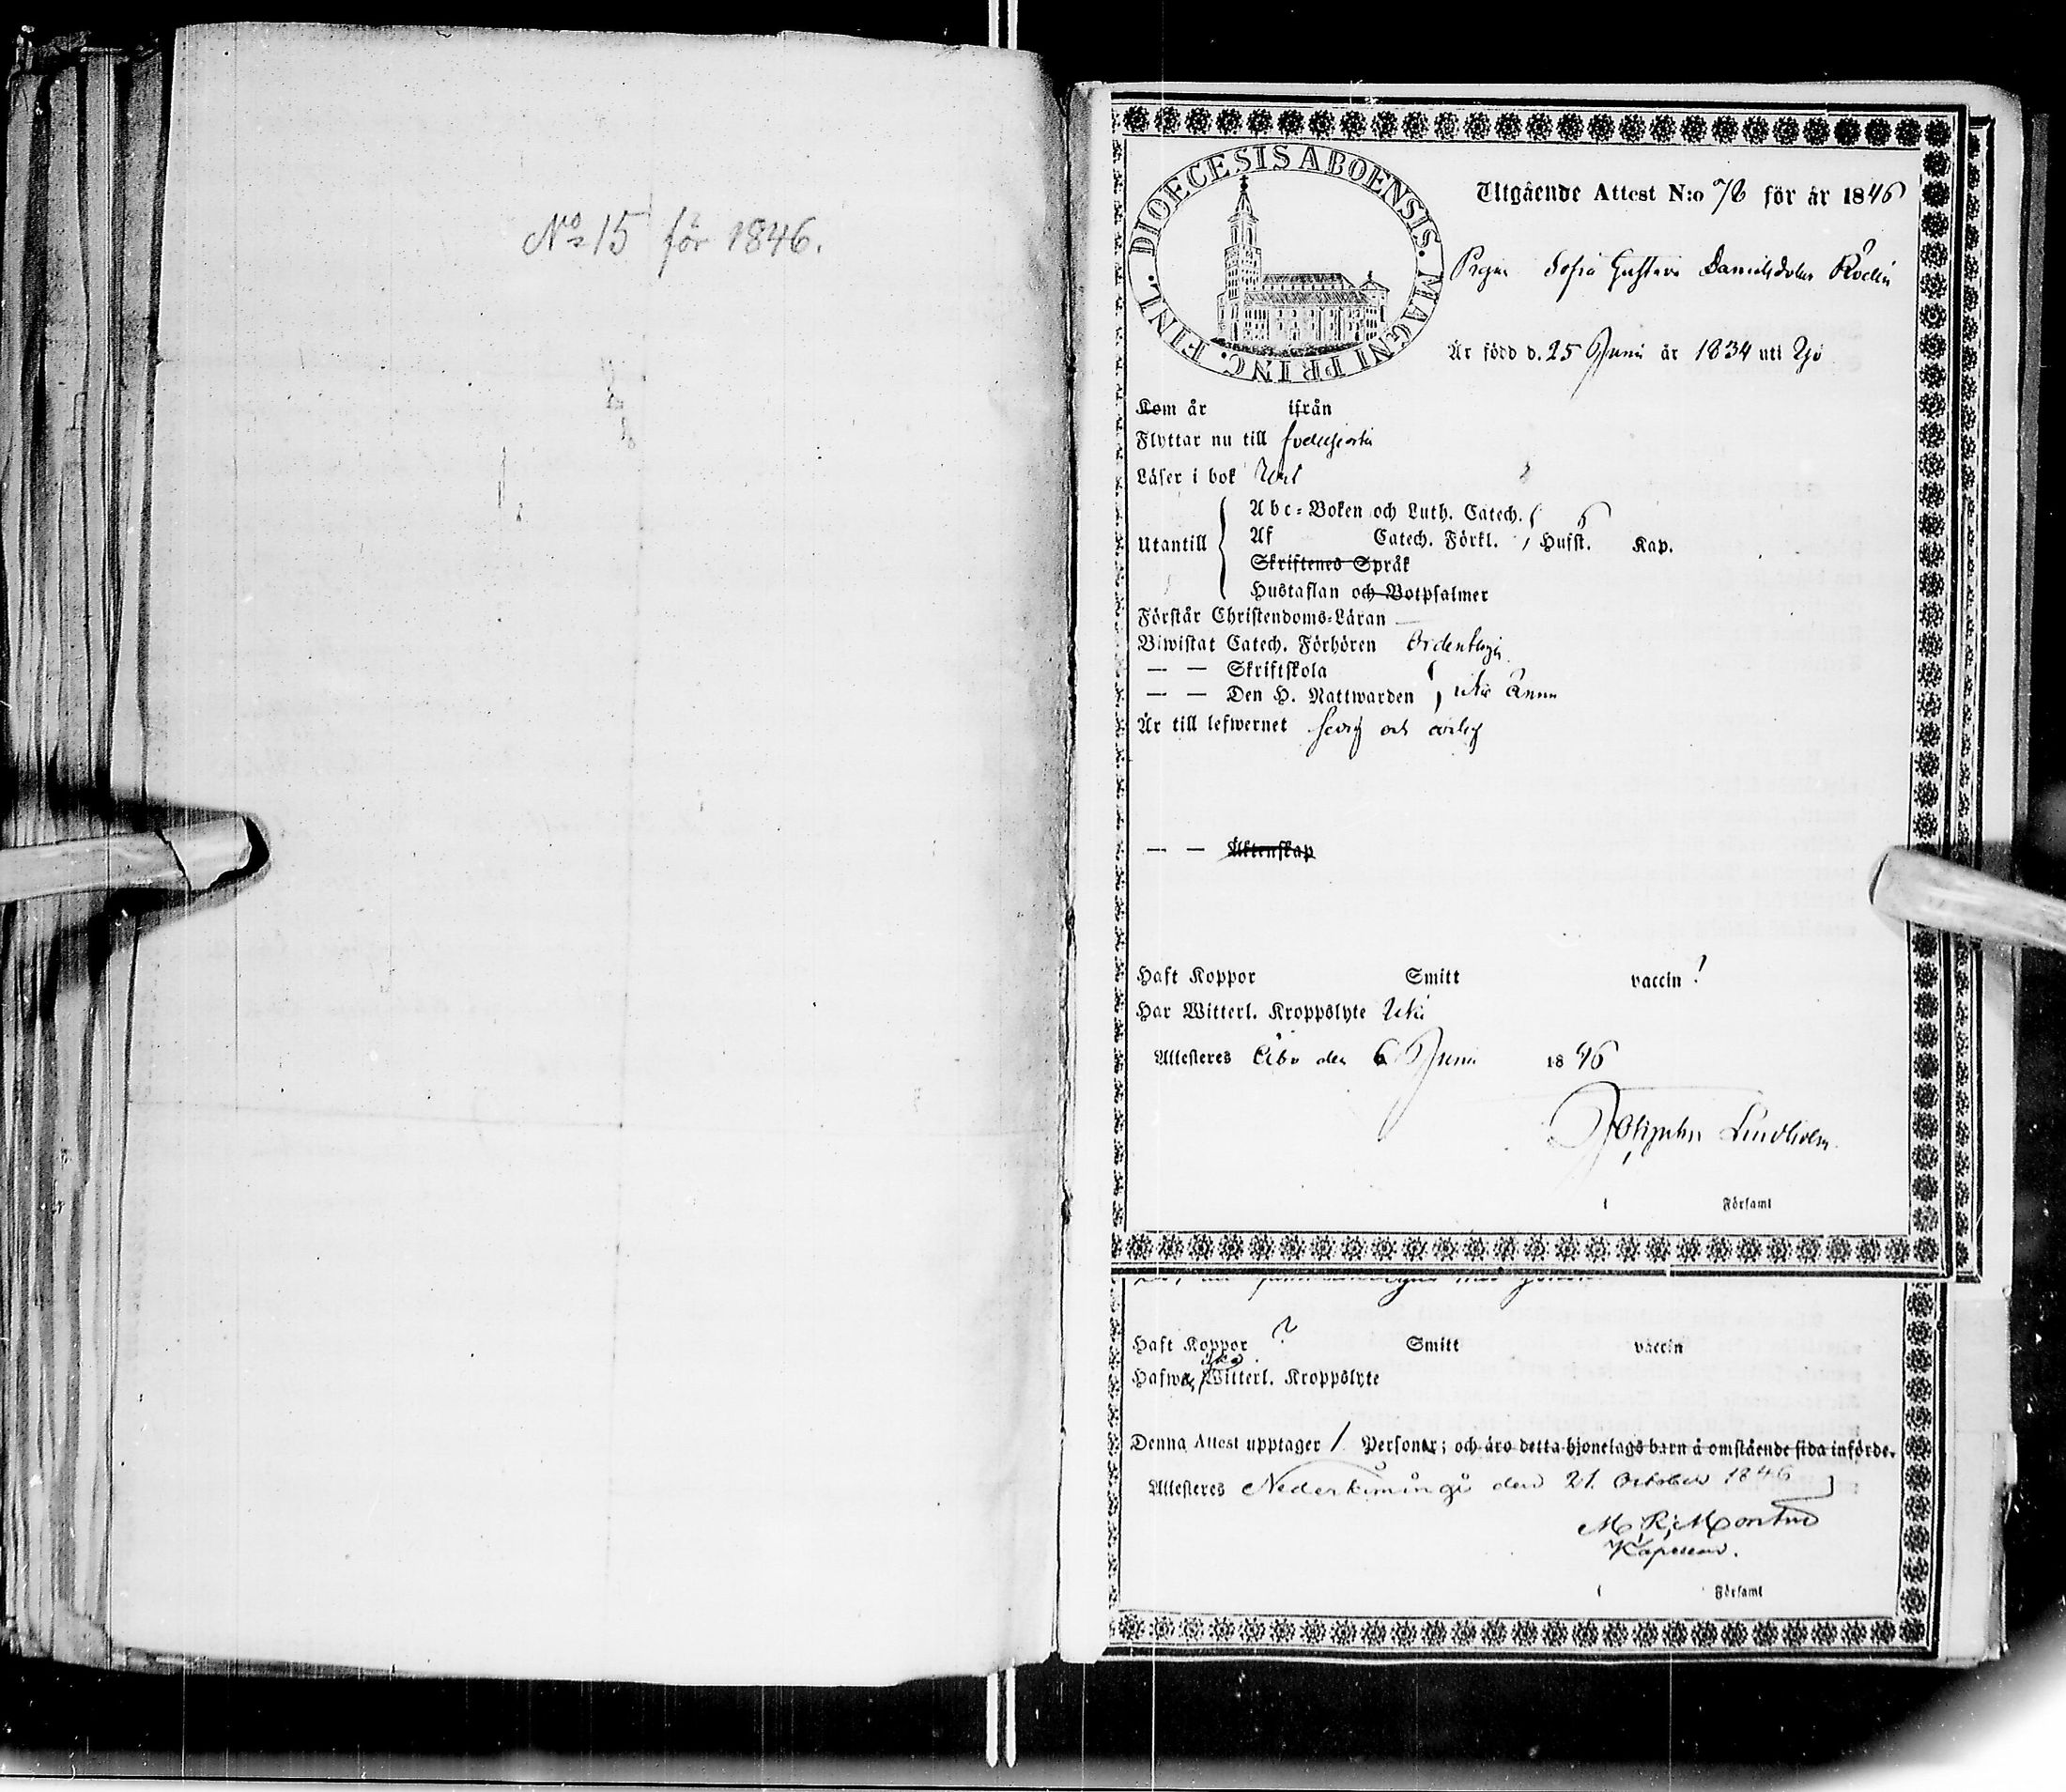 No 15 för 1846.
DIOECESIS ABOENSIS. MAGNI PRINC. FINL.
Utgående Attest N:o 78 för år 1846
Pigan Sofia Gustava Danielsdoter
Är född d. 25 Juni år 1834 uti
Kom år ifrån
Flyttar nu till
Läser i bok
Utantill
Abc-Boken och Luth. Catech.
Af Catech. Förkl. Husst. Kap.
Skriftenes Språk
Hustaflan och Botpsalmer
Förstår Christendoms-Läran
Biwistat Catech. Förhören Ordentligen
— — Skriftskola
— — Den H. Nattwarden icke ännu
Är till lefwernet frejd och ärlig
— — Äktenskap
Haft Koppor Smitt vaccin !
Har Witterl. Kroppslyte Icke
Attesteres Åbo den 6 Juni 1846
Lindholm.
i Församl
Haft Koppor ? Smitt vaccin
Hafwa icke Witterl. Kroppslyte
Denna Attest upptager 1 Personer; och äro detta hjonelags barn å omstående sida införde.
Attesteres Nederkumångi den 21. October 1846
M. R.
Kapellan.
i Församl